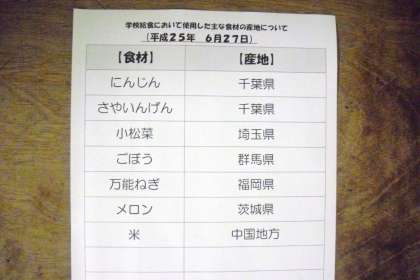 学校給食において使用した主な食材の産地について
(平成25年 6月27日)
【食材】 【産地】
にんじん 千葉県
さやいんげん 千葉県
小松菜 埼玉県
ごぼう 群馬県
万能ねぎ 福岡県
メロン 茨城県
米 中国地方